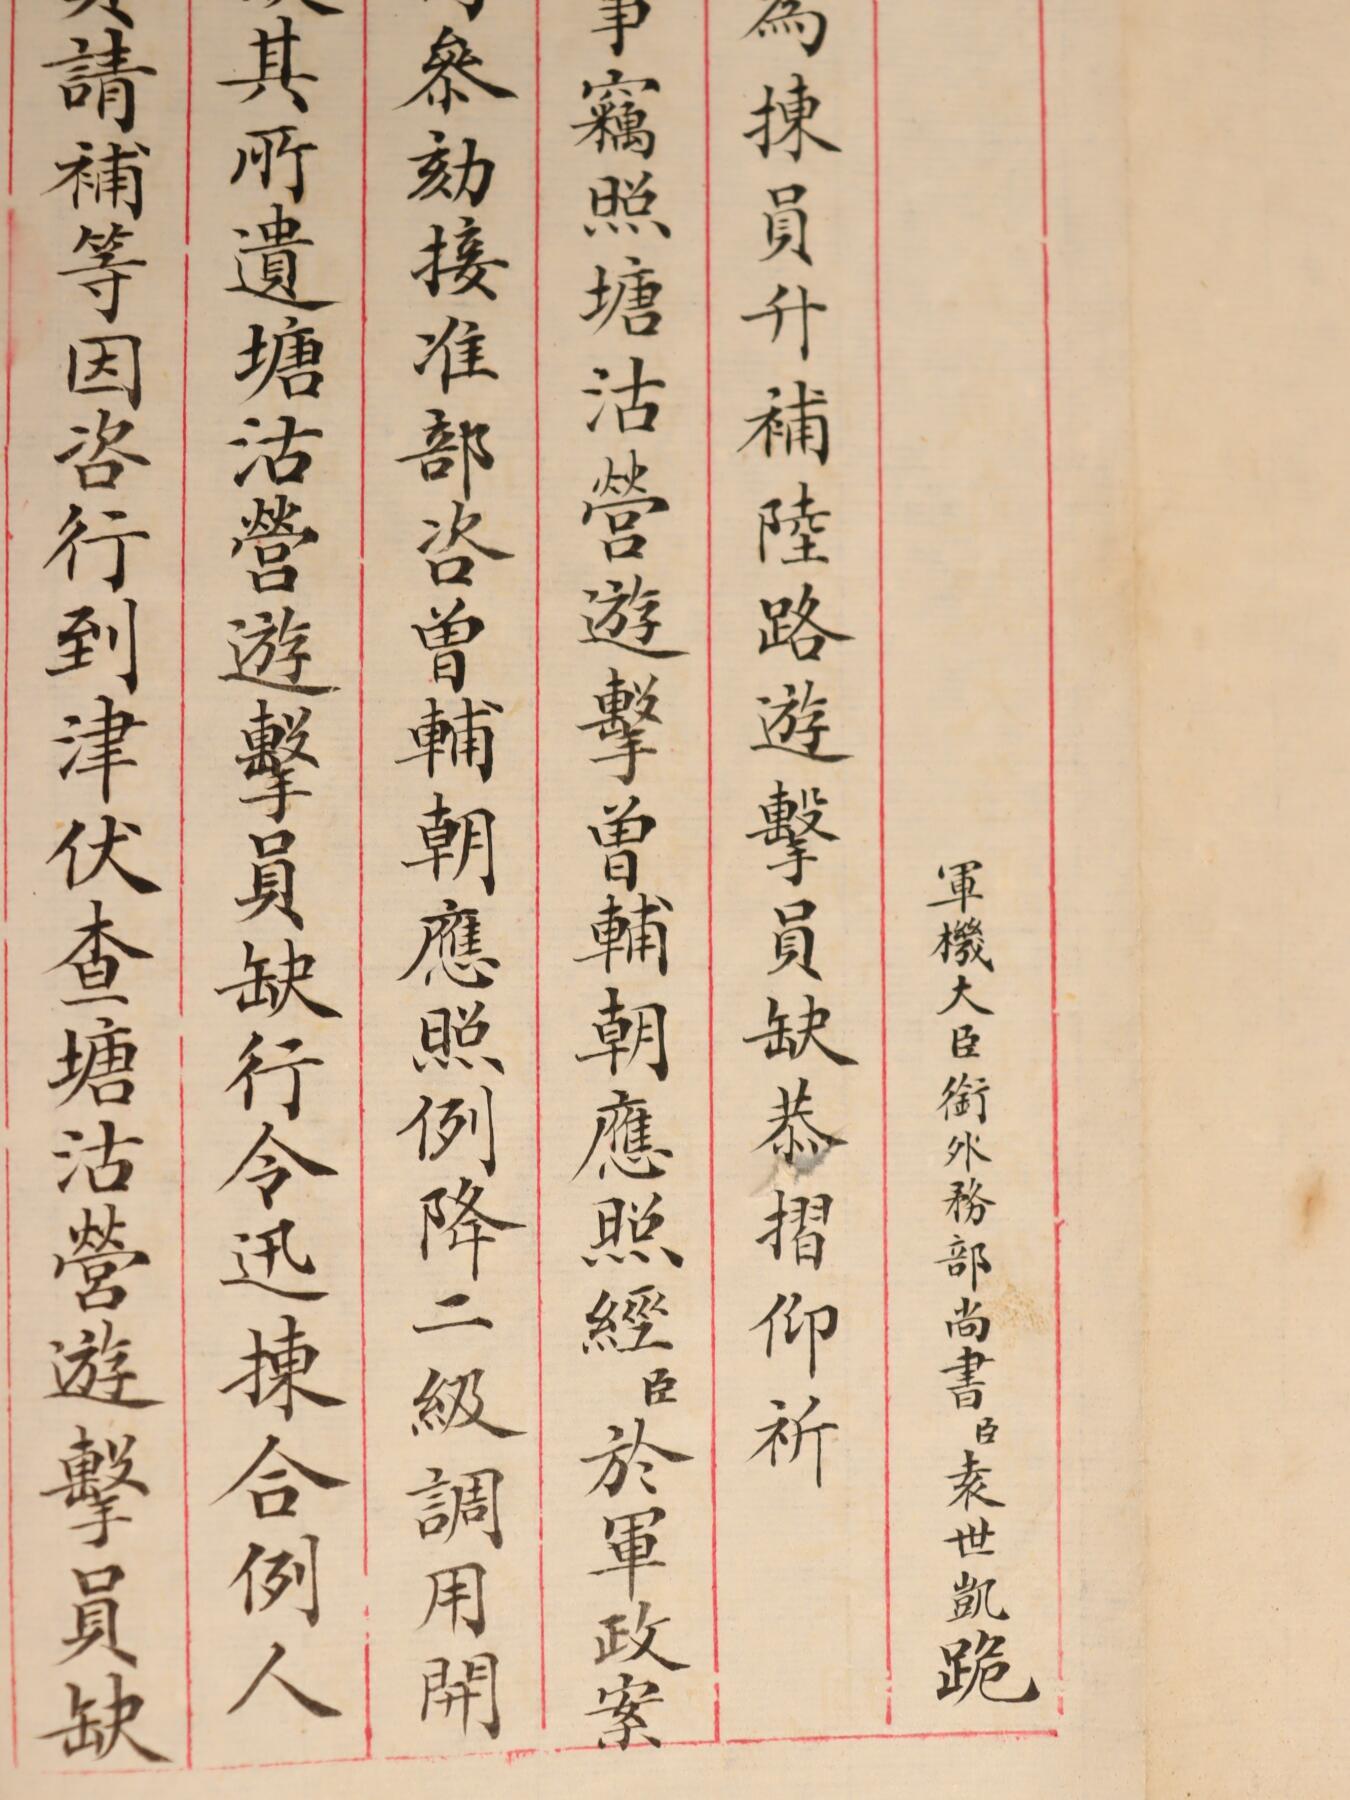 軍機大臣銜外務部尚書臣袁世凱跪
為揀員升補陸路遊擊員缺恭摺仰祈
事竊照塘沽營遊擊曾輔朝應照經臣於軍政案
參劾接准部咨曾輔朝應照例降二級調用開
其所遺塘沽營遊擊員缺行令迅揀合例人
請補等因咨行到津伏查塘沽營遊擊員缺